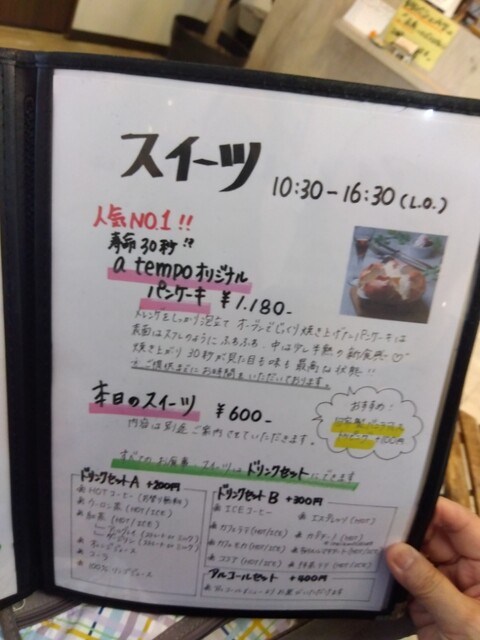 スイーツ
10:30-16:30 (L.O.)
人気NO.1!!
寿命30秒!?
a tempoオリジナル
パンケーキ ¥1.180-
メレンゲをしっかり泡立て オーブンでじっくり焼き上げたパンケーキは
表面はスフレのように ふわふわ、中は少し半熟の新食感♡
焼き上がり30秒が見た目も味も最高な状態!!
ご提供までにお時間をいただいております。
本日のスイーツ ¥600-
内容は別途ご案内させていただきます。
おすすめ!
+100円
すべてのお食事、スイーツはドリンクセットにできます
ドリンクセットA +200円
HOTコーヒー(お替り無料)
ウーロン茶(HOT/ICE)
紅茶(HOT/ICE)
オレンジジュース
コーラ
100%リンゴジュース
ドリンクセットB +300円
ICEコーヒー
カフェラテ(HOT/ICE)
カフェモカ(HOT/ICE)
ココア(HOT/ICE)
エスプレッソ(HOT)
抹茶ラテ(HOT/ICE)
アルコールセット +400円